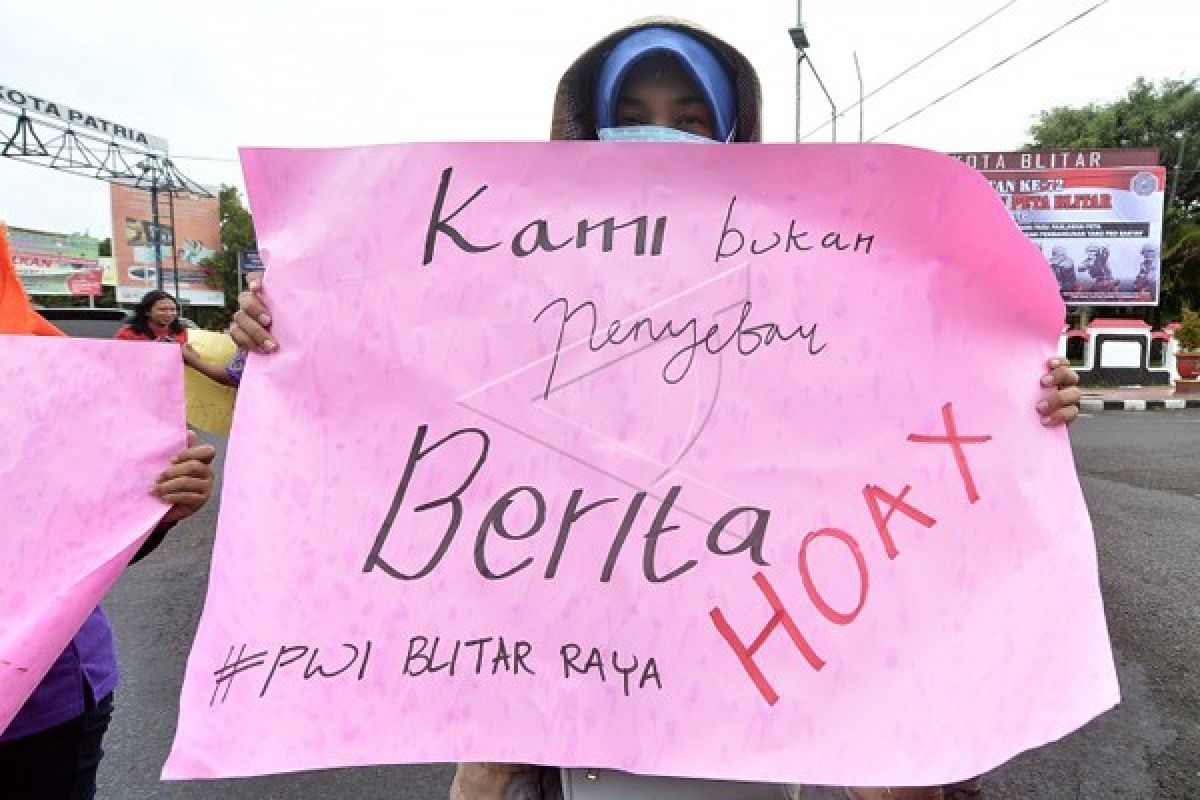 KOTA PATRIA
KOTA BLITAR
KE-72
PETA BLITAR
Kami bukan
Penyebar
Berita
HOAX
#PWI BLITAR RAYA